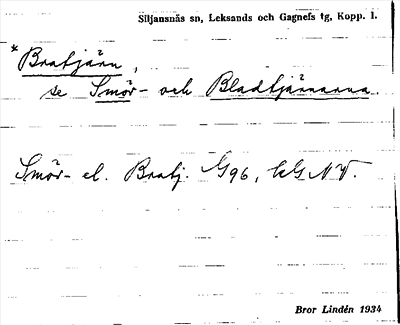 Siljansnäs sn, Leksands och Gagnefs tg, Kopp. l.
* Bratjärn,
se Smör- och Bladtjärnarna.
Smör- el. Bratj. G96, kG NV.
Bror Lindén 1934